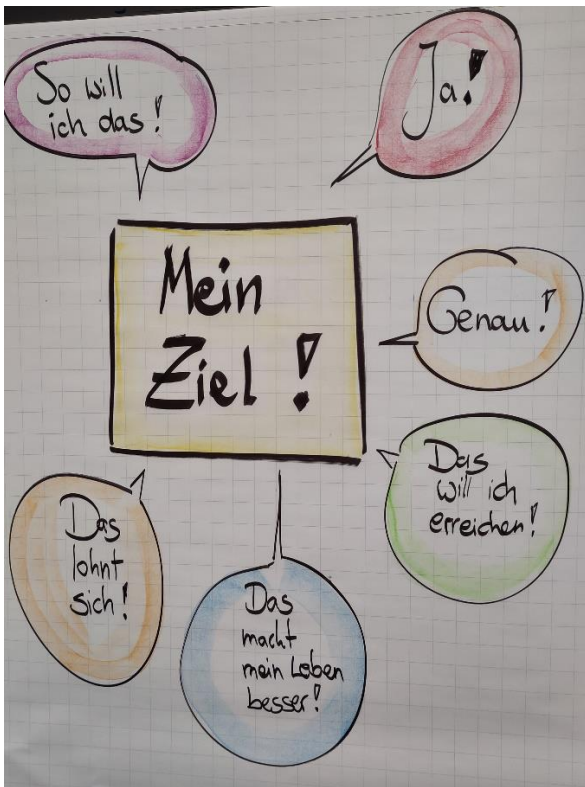 So will
ich das!
Ja!
Mein
Ziel!
Genau!
Das
will ich
erreichen!
Das
lohnt
sich!
Das
macht
mein Leben
besser!